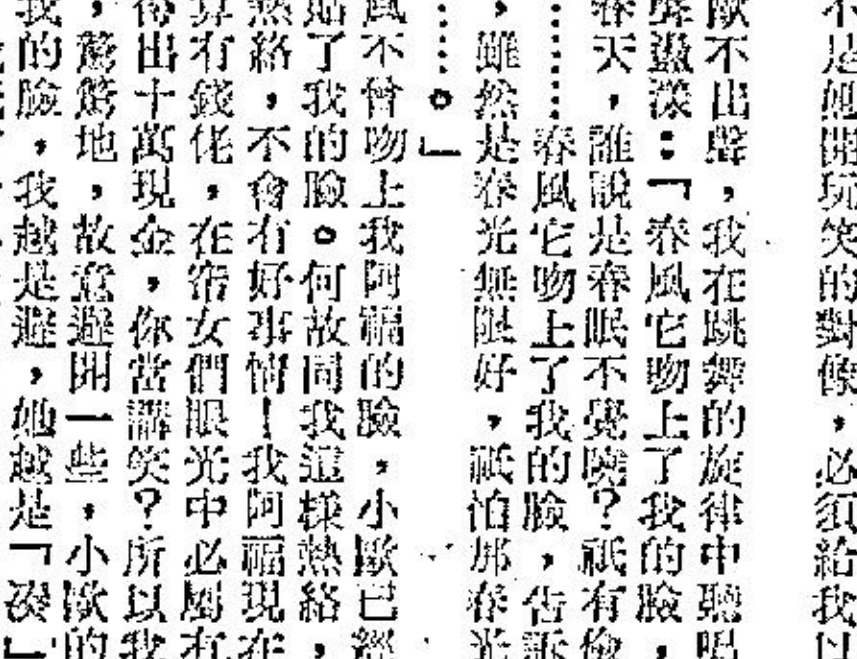 不是她開玩笑的對像，必須給我以
歐不出聲，我在跳舞的旋律中聽唱
聲盪漾：「春風它吻上了我的臉，
春天，誰說是春眠不覺曉？祇有偷
……春風它吻上了我的臉，告訴
，雖然是春光無限好，祇怕那春光
……。」
風不曾吻上我阿福的臉，小歐已經
貼了我的臉。何故同我這樣熱絡，
熱絡，不會有好事情！我阿福現在
算有錢佬，在女們眼光中必屬有
得出十萬現金，你當講笑？所以我
，驚驚地，故意避開一些，小歐的
我的臉，我越是避，她越是「湊」